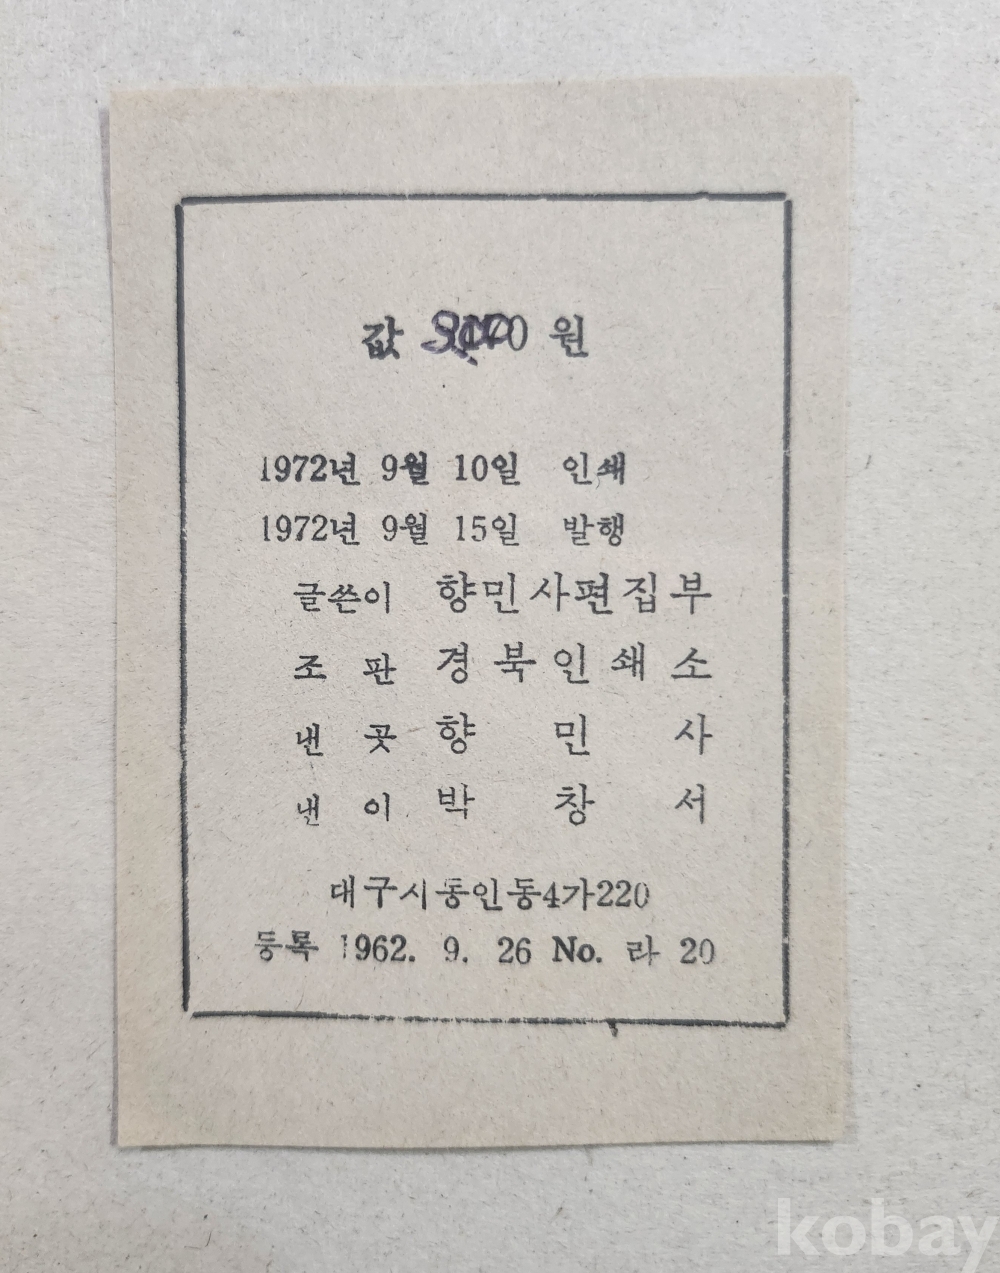 값 원
1972년 9월 10일 인쇄
1972년 9월 15일 발행
글쓴이 향민사편집부
조 판 경북인쇄소
낸 곳 향 민 사
낸 이 박 창 서
대구시동인동4가220
등록 1962. 9. 26 No. 라 20
kobay